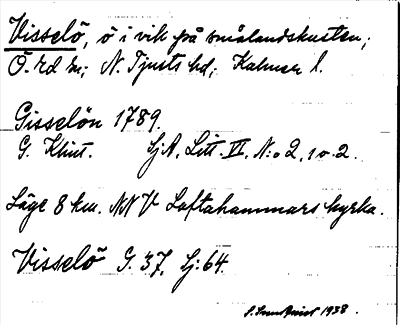 Visselö, ö i vik på smålandskusten;
Ö. Ed sn; N. Tjusts hd; Kalmar l.
Gisselön 1789.
G. Klint. Sj A, Litt. II, N:o 2, 1 o. 2.
Läge 8 km. NNV Loftahammars kyrka.
Visselö G. 37, Sj: 64.
1938.